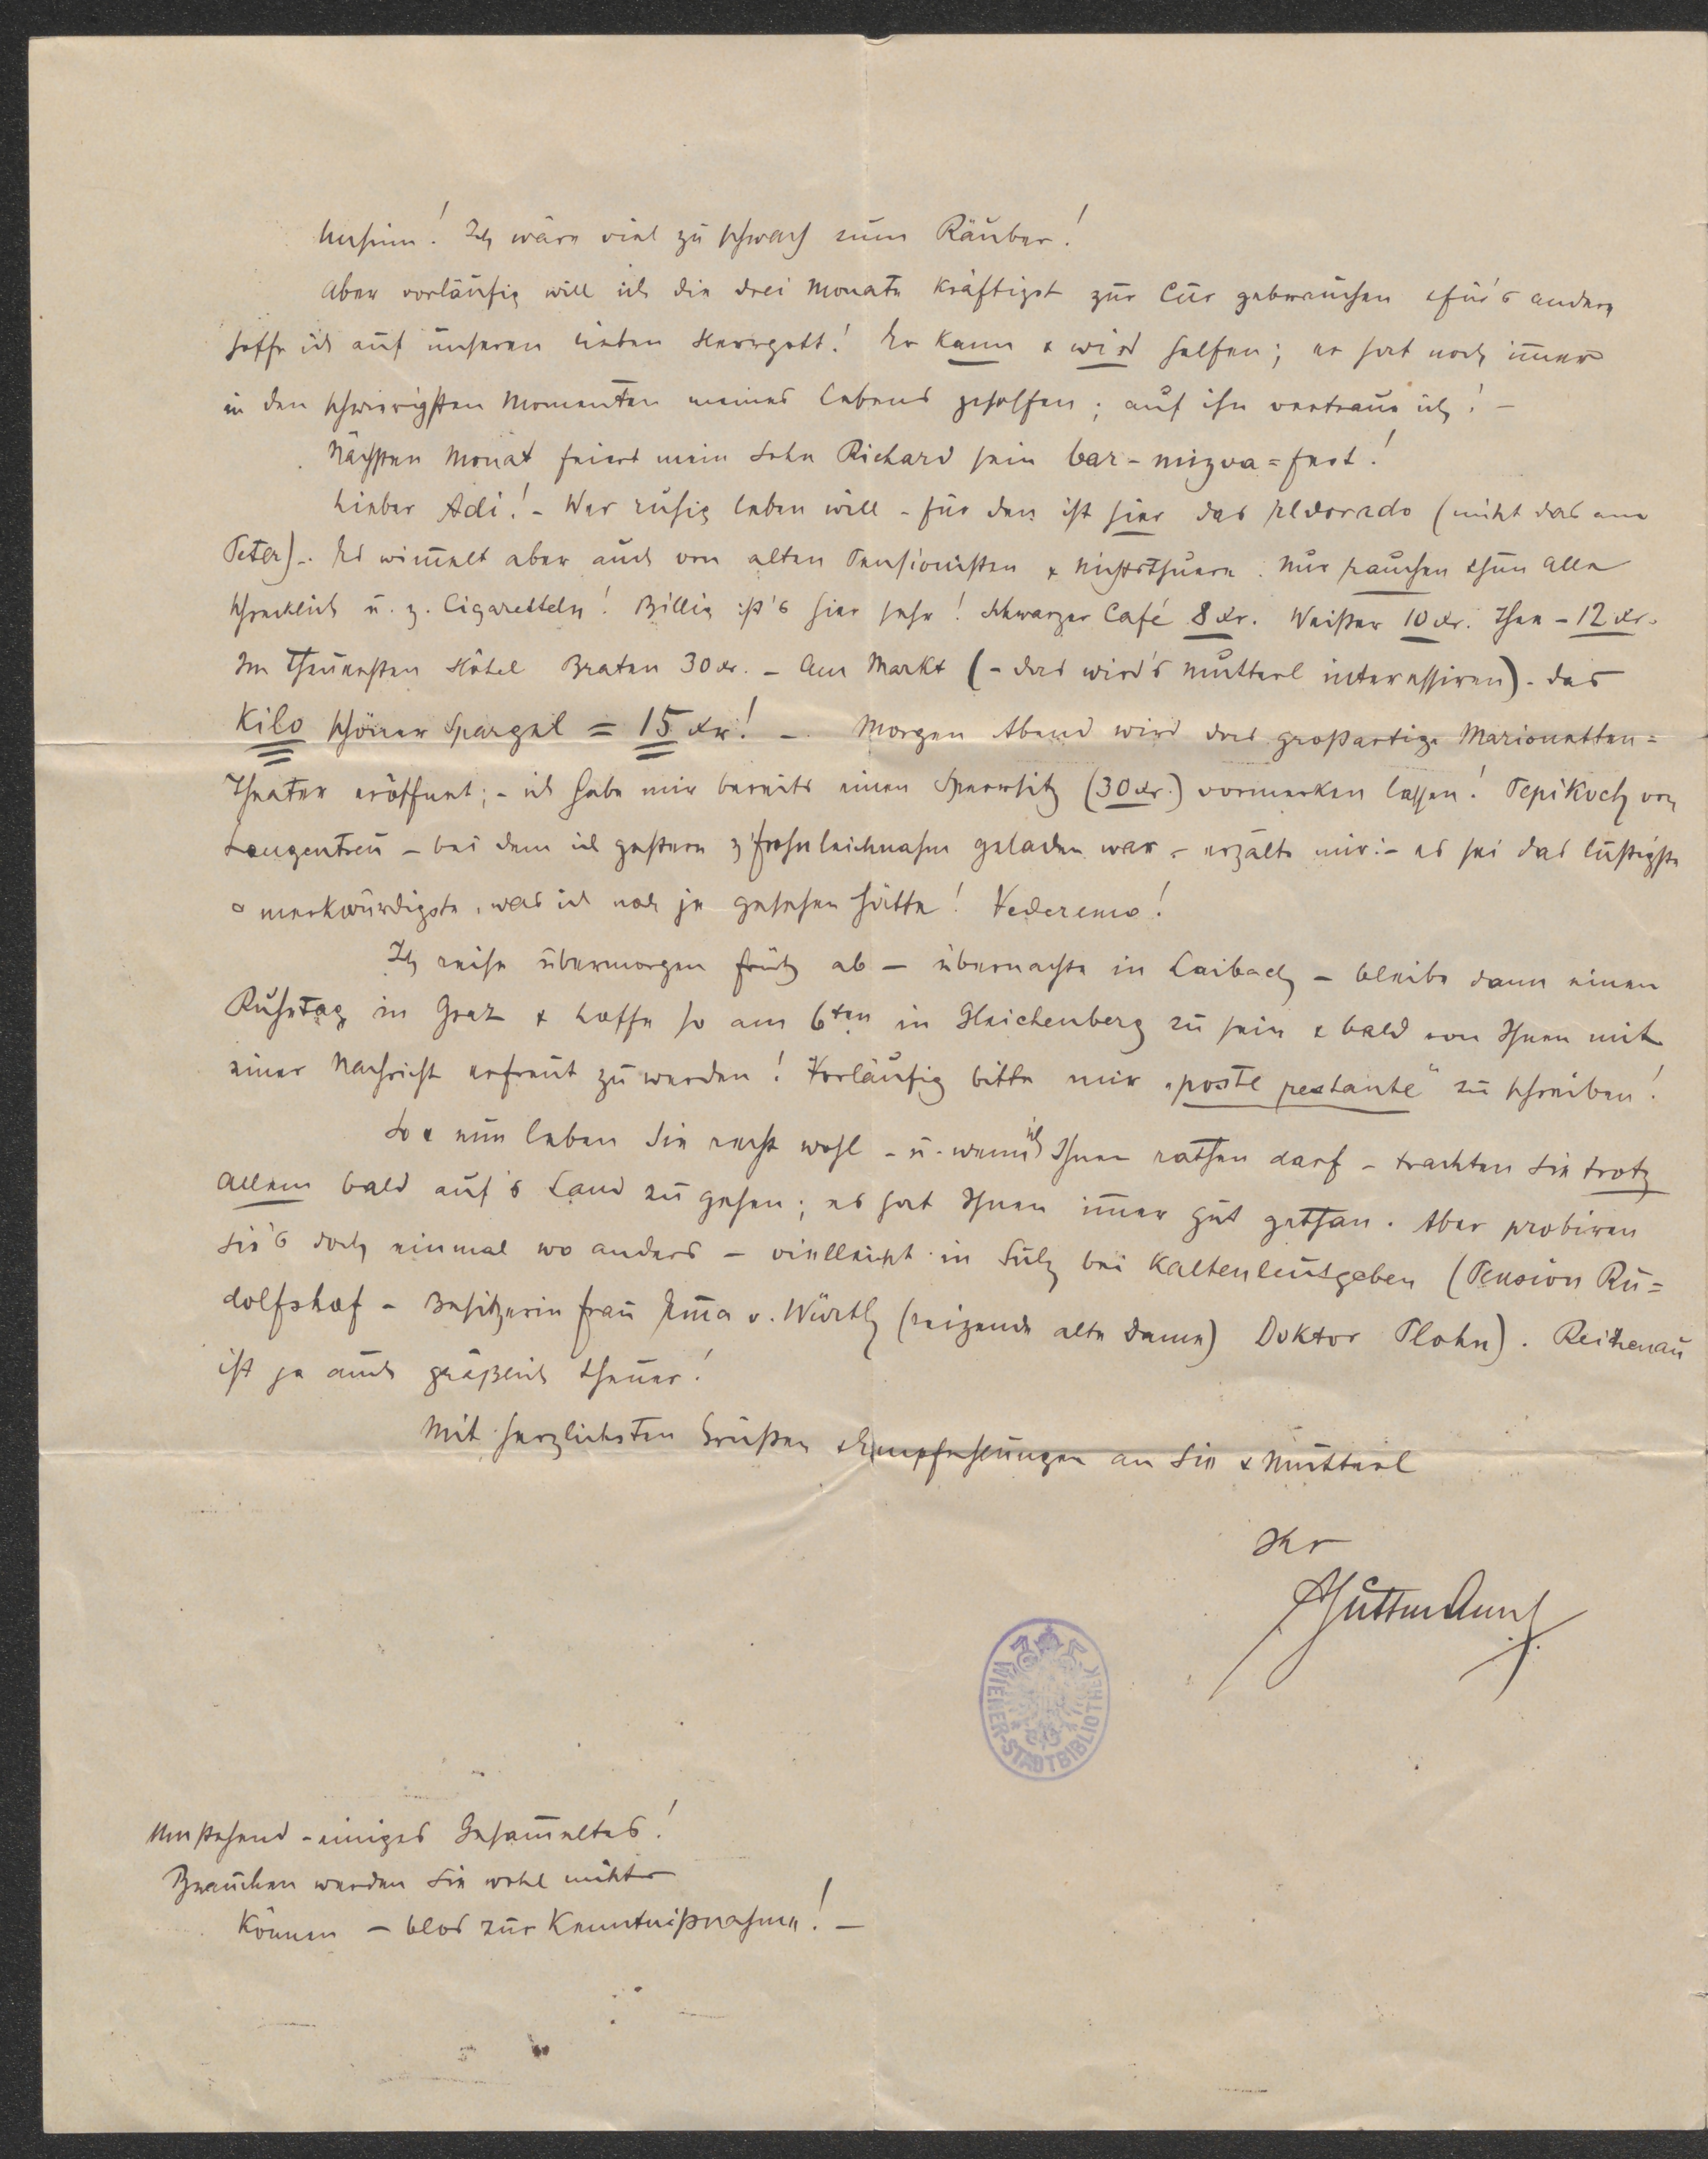 Unsinn! Ich wäre viel zu schwach zum Räuber!
Aber vorläufig will ich die drei Monate kräftigst zur Cur gebrauchen & für's andere
hoffe ich auf unseren lieben Herrgott! Er kann & wird helfen; er hat noch im̅er
in den schwierigsten Momenten meines Lebens geholfen; auf ihn vertraue ich! –
Nächsten Monat feiert mein Sohn Richard sein bar-mizva=fest!
Lieber Adi! – Wer ruhig leben will – für den ist hier das Eldorado (nicht das am
Peter). – Es wim̅elt aber auch von alten Pensionisten & Nichtsthuern. Nur rauchen thun alle
schrecklich u. z. Cigaretteln! Billig ist's hier sehr! Schwarzer Café 8 xr. Weißer 10 xr. Thee – 12 xr.
Im theuersten Hôtel Braten 30 xr. – Am Markt (– das wird's Mutterl interessiren) – das
Kilo schöner Spargel = 15 xr.! – Morgen Abend wird das großartige Marionetten=
Theater eröffnet; – ich habe mir bereits einen Sperrsitz (30 xr.) vormerken lassen! Pepi Koch von
Langentreu – bei dem ich gestern z' Frohnleichnahm geladen war – erzälte mir: – es sei das lustigste
& merkwürdigste, was ich noch je gesehen hätte! Vederemo!
Ich reise übermorgen früh ab – übernachte in Laibach – bleibe dann einen
Ruhetag in Graz & hoffe so am 6ten in Gleichenberg zu sein & bald von Ihnen mit
einer Nachricht erfreut zu werden! Vorläufig bitte mir „poste restante" zu schreiben!
So & nun leben Sie recht wohl – u. wenn ich Ihnen rathen darf – trachten Sie trotz
allem bald auf's Land zu gehen; es hat Ihnen im̅er gut gethan. Aber probiren
Sie's doch einmal wo anders – vielleicht in Sulz bei Kaltenleutgeben (Pension Ru=
dolfshof – Besitzerin Frau Em̅a v. Würth (reizende alte Dame) Doktor Plohn). Reichenau
ist ja auch gräßlich theuer!
Mit herzlichsten Grüßen & Empfehlungen an Sie & Mutterl
Ihr
AGuttmann
WIENER-STADTBIBLIOTHEK
Umstehend – einiges Gesam̅eltes!
Brauchen werden Sie wohl nichts
können – blos zur Kenntnißnahme! –